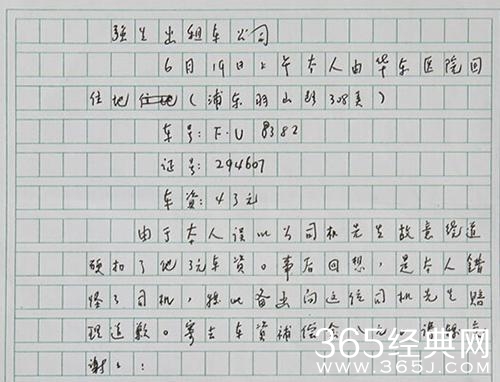 强生出租车公司
6月19日上午本人由华东医院回
住地(浦东羽山路308弄)
车号:F·U 8382
证号:294607
车资:43元
由于本人误以为司机先生故意绕道
扣了他3元车资。事后回想,是本人错
怪了司机,特此备函向这位司机先生赔
理道歉。寄去车资补偿金 元。请转交
谢谢:
365经典网